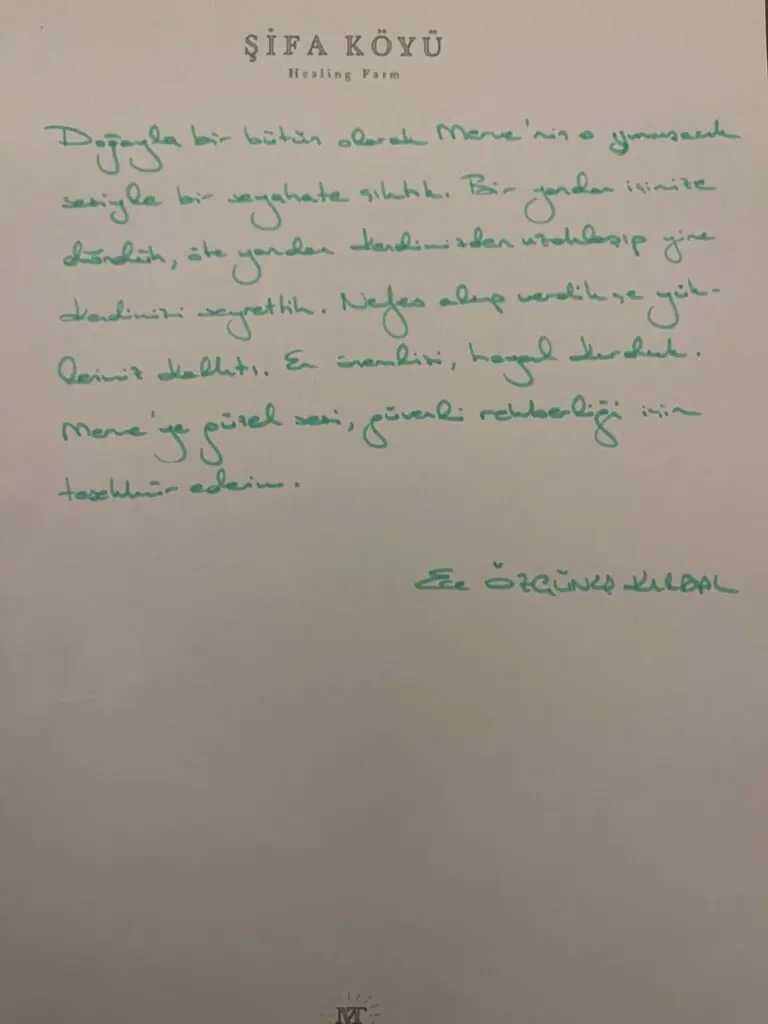 ŞİFA KÖYÜ
Healing Farm
Doğayla bir bütün olarak Merve'nin o yumuşacık
sesiyle bir seyahate çıktık. Bir yandan içimize
döndük, öte yandan kendimizden uzaklaşıp yine
kendimizi seyrettik. Nefes alıp verdikçe yük-
lerimiz kalktı. En önemlisi, hayal kurduk.
Merve'ye güzel sesi, güvenli rehberliği için
teşekkür ederim.
Ece ÖZGÜNEŞ
MT